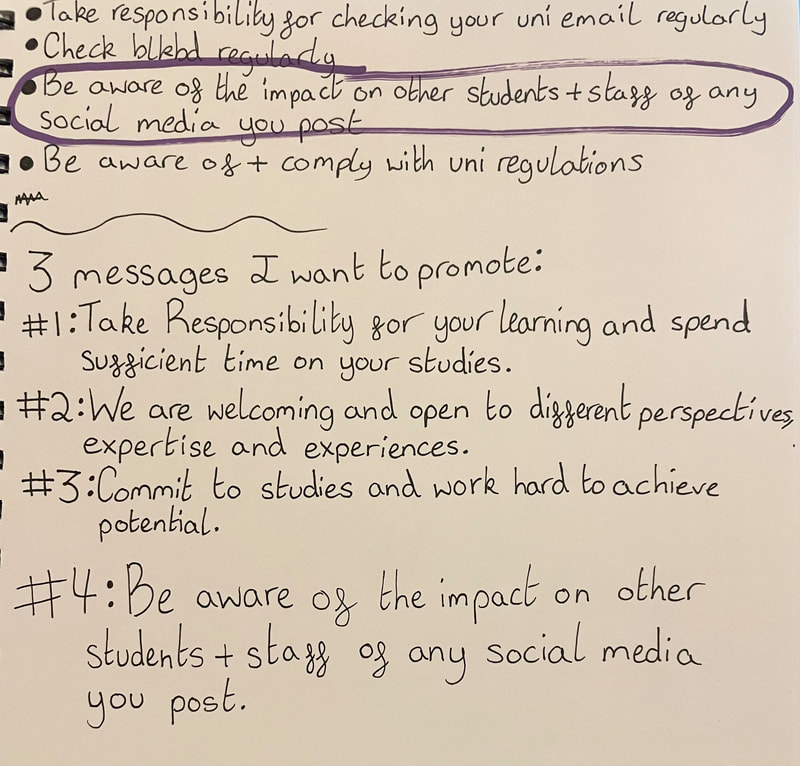 •Take responsibility for checking your uni email regularly
•Check blkbd regularly
•Be aware of the impact on other students + staff of any
social media you post
•Be aware of + comply with uni regulations
3 messages I want to promote:
#1: Take Responsibility for your learning and spend
sufficient time on your studies.
#2: We are welcoming and open to different perspectives,
expertise and experiences.
#3: Commit to studies and work hard to achieve
potential.
#4: Be aware of the impact on other
students + staff of any social media
you post.